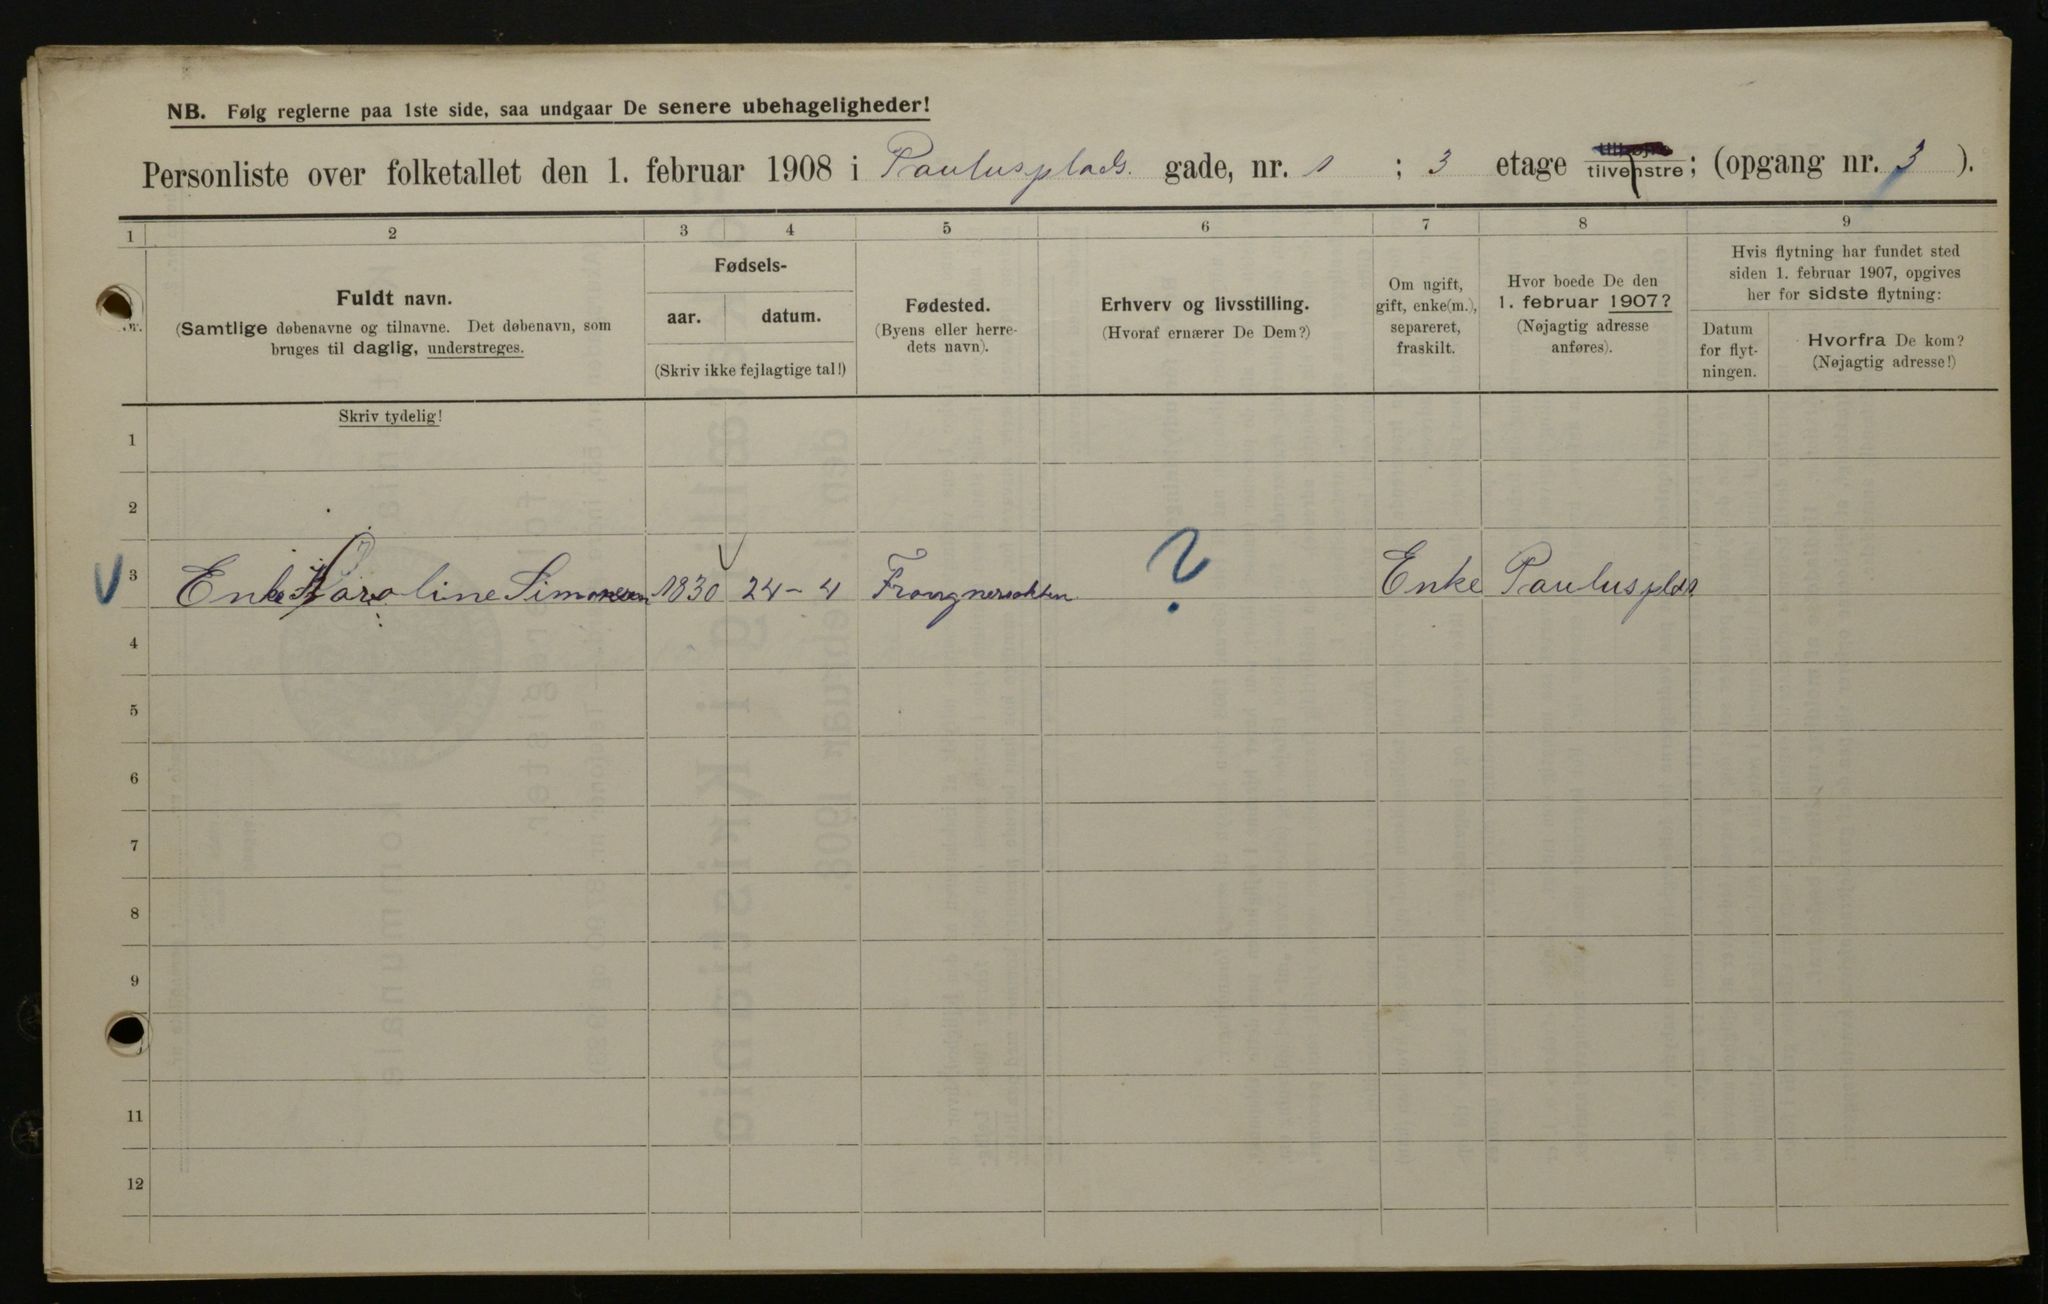 NB. Følg reglerne paa 1ste side, saa undgaar De senere ubehageligheder!
Personliste over folketallet den 1. februar 1908 i Paulusplads. gade, nr. 1 ; 3 etage tilhøjre tilvenstre; (opgang nr. 3 ).
1 2 3 4 5 6 7 8 9
Nr.
Fuldt navn.
(Samtlige døbenavne og tilnavne. Det døbenavn, som
bruges til daglig, understreges.
Fødsels-
aar. datum.
(Skriv ikke fejlagtige tal!)
Fødested.
(Byens eller herre-
dets navn).
Erhverv og livsstilling.
(Hvoraf ernærer De Dem?)
Om ugift,
gift, enke(m.),
separeret,
fraskilt.
Hvor boede De den
1. februar 1907?
(Nøjagtig adresse
anføres).
Hvis flytning har fundet sted
siden 1. februar 1907, opgives
her for sidste flytning:
Datum
for flyt-
ningen.
Hvorfra De kom?
(Nøjagtig adresse!)
Skriv tydelig!
1
2
3 Enke Karoline Simonsen 1830 24-4 ? Enke Paulusplds.
4
5
6
7
8
9
11
12